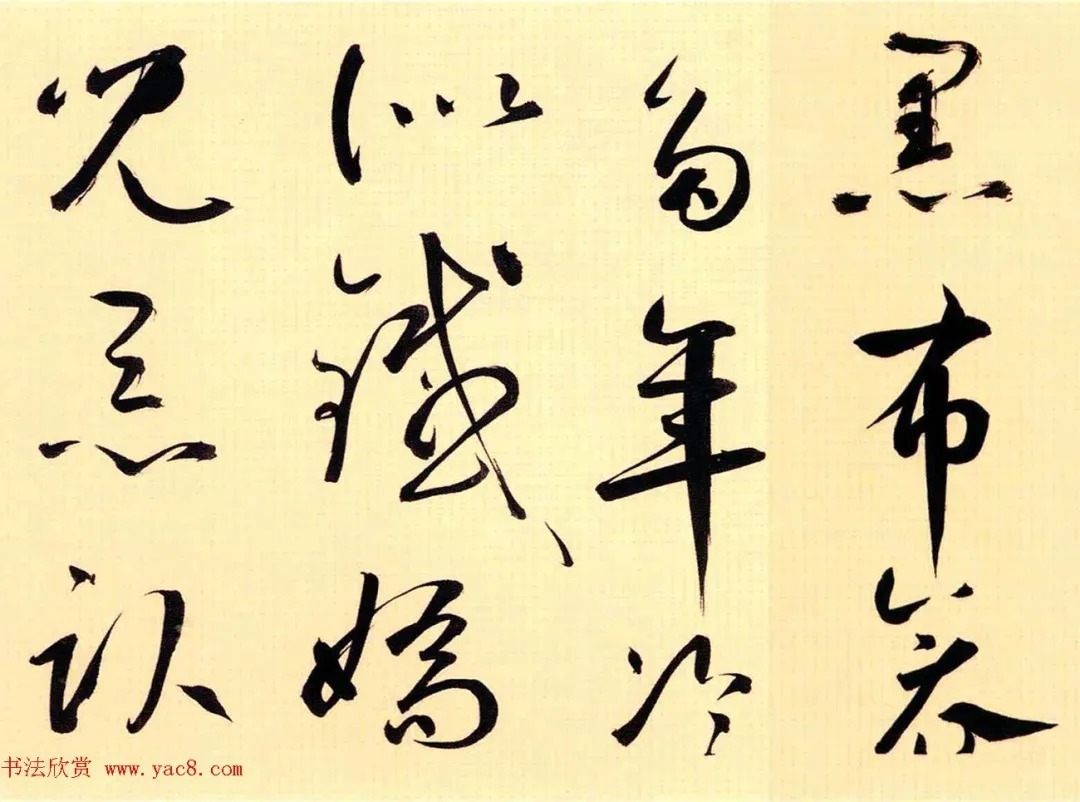 黑布衾
多年冷
似鐵嬌
兒惡臥
书法欣赏 www.yac8.com